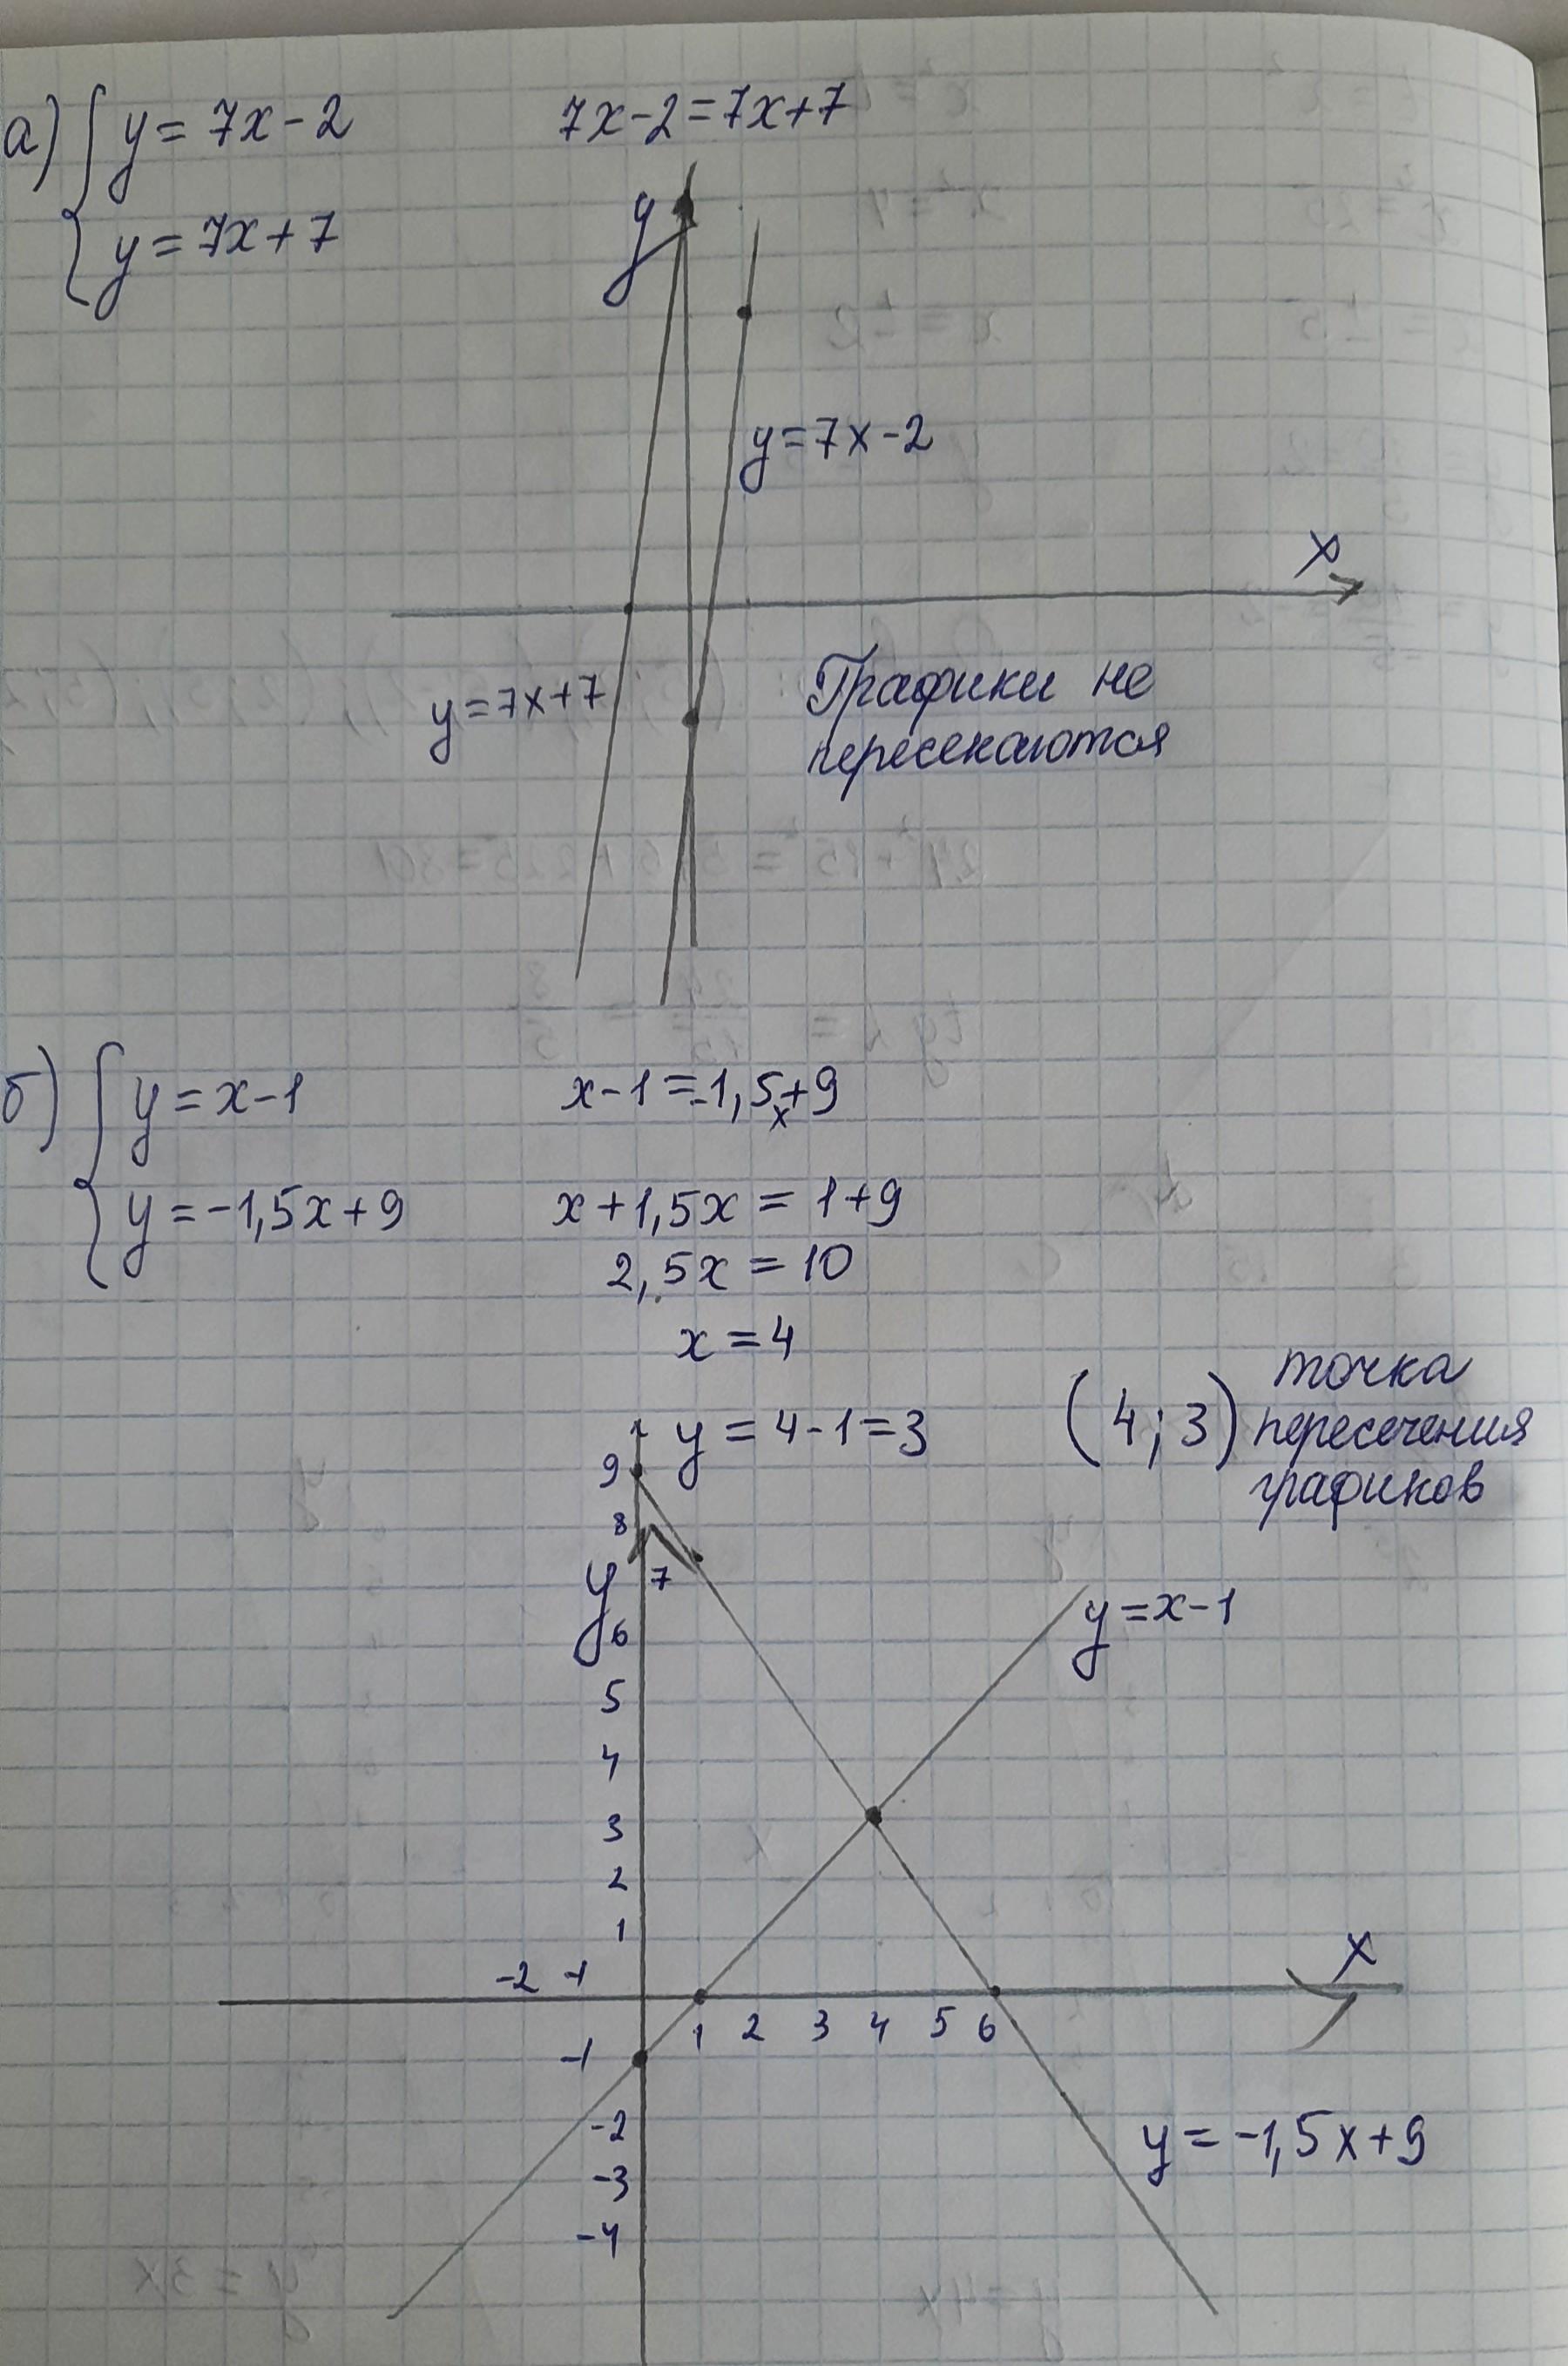 а) { y = 7x - 2
y = 7x + 7
7x - 2 = 7x + 7
y
y = 7x - 2
x
y = 7x + 7
Графики не
пересекаются
б) { y = x - 1
y = -1,5x + 9
x - 1 = -1,5x + 9
x + 1,5x = 1 + 9
2,5x = 10
x = 4
y = 4 - 1 = 3
(4; 3) точка
пересечения
графиков
9
8
y 7
6
5
4
3
2
1
y = x - 1
-2 -1
x
1 2 3 4 5 6
-1
-2
-3
-4
y = -1,5x + 9